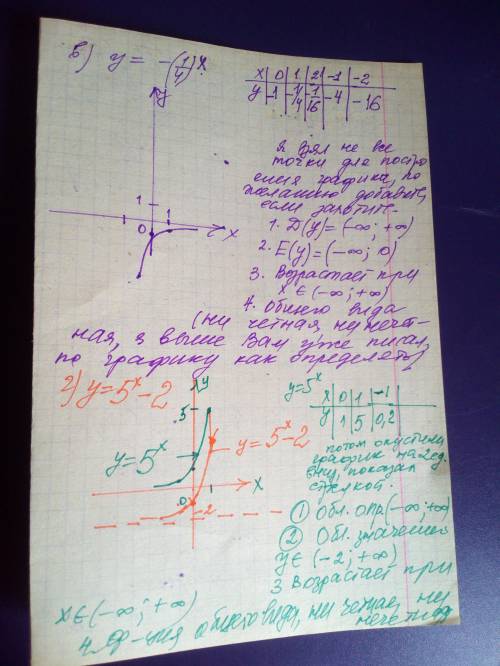 в) y = -(1/4)^x
x | 0 | 1 | 2 | -1 | -2
y | -1 | -1/4 | -1/16 | -4 | -16
y
1
0 1 x
Я взял не все
точки для постро
ения графика, по
желанию добавите,
если захотите-
1. D(y)=(-∞; +∞)
2. E(y)=(-∞; 0)
3. Возрастает при
x ∈ (-∞; +∞)
4. Общего вида
(ни четная, ни нечет-
ная, я выше Вам уже писал,
по графику как определять)
г) y=5^x-2
y
5
y=5^x
y=5^x-2
x
0 1
-2
y=5^x
x | 0 | 1 | -1
y | 1 | 5 | 0,2
потом опустили
график на 2 ед.
вниз, показал
стрелкой.
① Обл. опр (-∞; +∞)
② Обл. значений
y ∈ (-2; +∞)
3 Возрастает при
x ∈ (-∞; +∞)
4. Ф-ция общего вида, ни четная, ни
нечетная